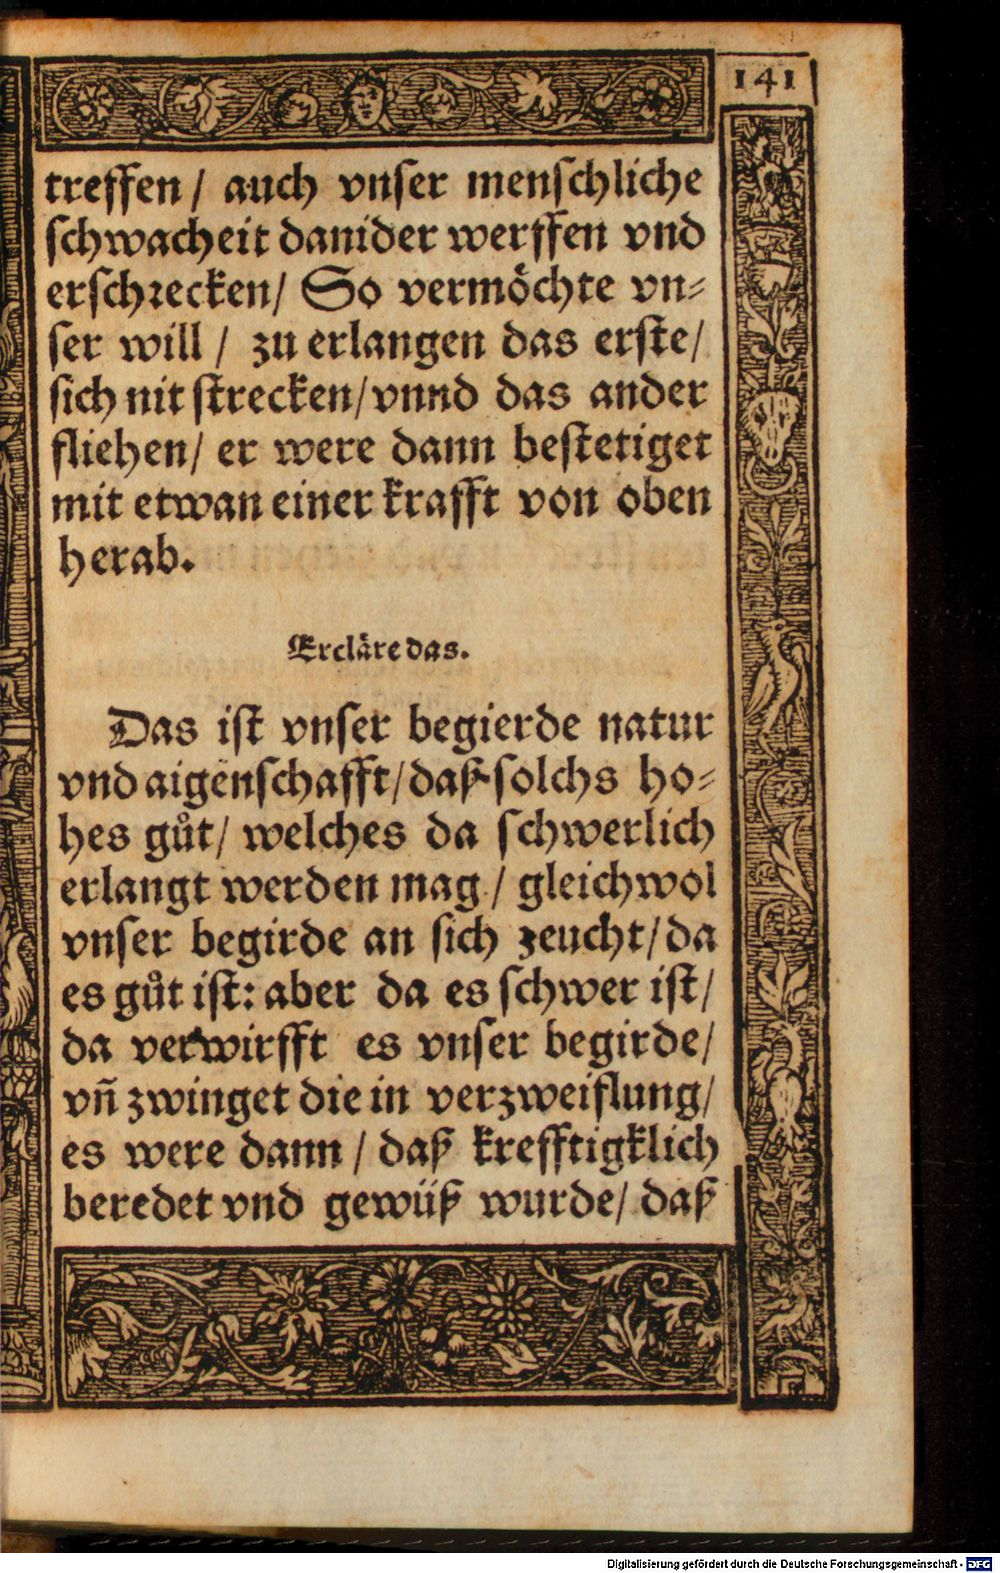 141
treffen / auch vnser menschliche
schwacheit danider werffen vnd
erschrecken / So vermöchte vn⸗
ser will / zu erlangen das erste /
sich nit strecken / vnnd das ander
fliehen / er were dann bestetiget
mit etwan einer krafft von oben
herab.
Ercläre das.
Das ist vnser begierde natur
vnd aigenschafft / daß solchs ho⸗
hes gůt / welches da schwerlich
erlangt werden mag / gleichwol
vnser begirde an sich zeucht / da
es gůt ist: aber da es schwer ist /
da verwirfft es vnser begirde /
vñ zwinget die in verzweiflung /
es were dann / daß krefftigklich
beredet vnd gewüß wurde / daß
Digitalisierung gefördert durch die Deutsche Forschungsgemeinschaft - DFG